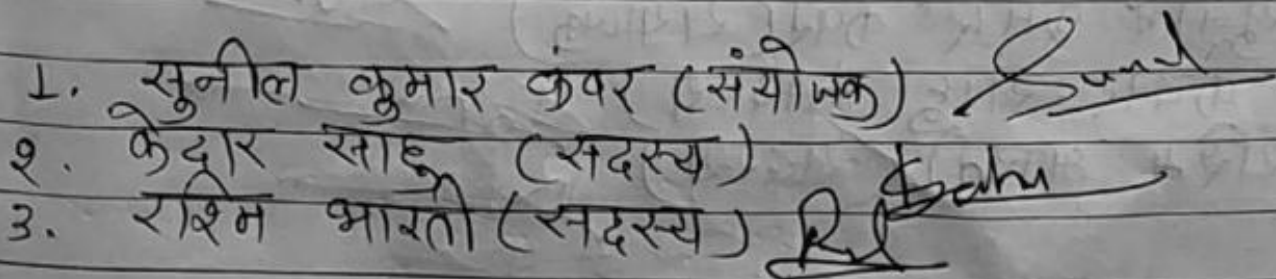 1. सुनील कुमार कंवर (संयोजक) Sunil
२. केदार साहू (सदस्य) Sahu
3. रश्मि भारती (सदस्य)